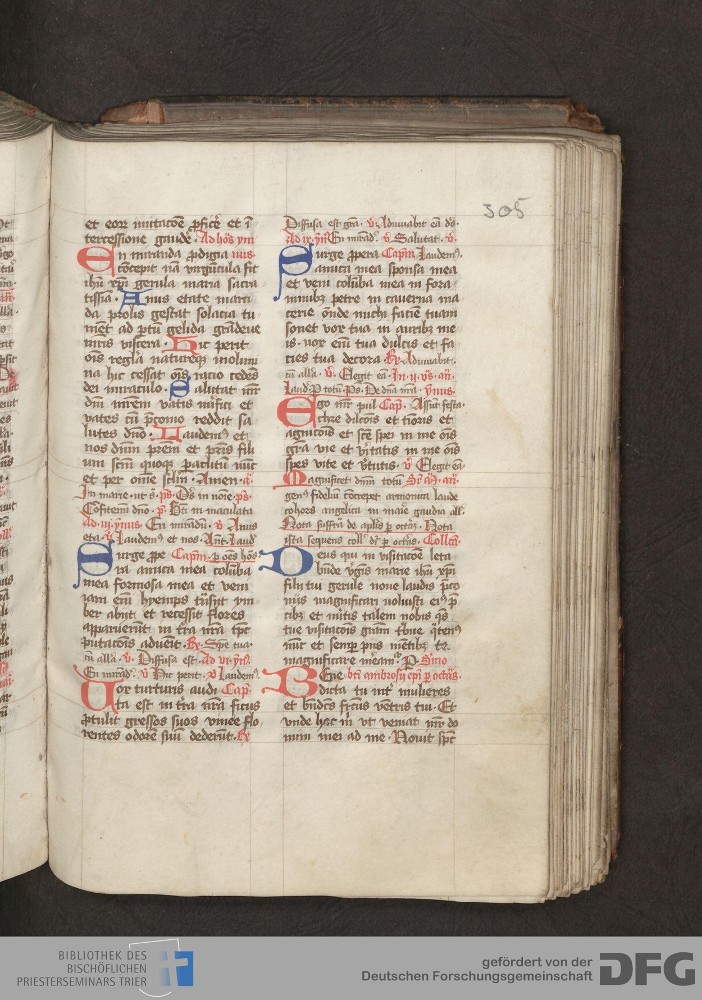 305
et eoꝝ imitacõe ꝓficẽ et ĩ
tercessione gaudẽ. Ad hõs ym
En miranda ꝓdigia nus.
cõcepit nã virgũcula fit
ihũ xpĩ gerula maria sacra
tissĩa. Anus etate marci
da prolis gestat solacia tu
ment ad ptũ gelida grãdeue
mris viscera. Hic perit
oĩs regla natureqꝫ molimi
na hic cessat oĩs racio cedẽs
dei miraculo. Salutat mr̃
dñi mrẽm vatis mĩfici et
pates cũ p̃conio reddit sa
lutes dño. Laudemꝰ et
nos dñm prẽm et pr̃is fili
um scm̃ quoqꝫ paclitũ nũc
et per omẽ sclm̃. Amen. a
In marie. ut s. ps. Dẽs in noĩe. ps.
Cõfitemi dño. p. Bti in maculata
Ad iii. ymnus. En mirãda. v. Anus
etata v. Laudemꝰ et nos. Ant. Laud
Surge ꝓpe Capm̃. p oẽs hõs
ra amica mea colũba
mea formosa mea et veni
iam em̃ hyemps trãsiit ym
ber abijt et recessit flores
apparuerũt in tra nr̃a tp̃s
putacõis adueit. R. Spe tua.
cũ alla. v. Diffusa est. Ad vi. ym.
En mirãd. v. Hic perit. v. Laudemꝰ.
Vox turturis audi Cap.
ta est in tra nr̃a ficus
ꝓtulit grossos suos vinee flo
rentes odorẽ suũ dederũt. R
Diffusa est grã. v. Adiuuabit eã dẽ.
Ad ix. ym̃ En mirãd. v. Salutat. v.
Surge ꝓpera Capm̃ Laudemꝰ.
amica mea sponsa mea
et veni colũba mea in fora
minibꝫ petre in cauerna ma
cerie ondẽ michi faciẽ tuam
sonet vox tua in auribꝫ me
is. vox em̃ tua dulcis et fa
cies tua decora R. Adiuuabit.
cũ alla. v. Elegit eã. In ii. vs. añ.
Laud. P totũ. Ps. De dña nr̃a. ymus.
Ego mr̃ pul Cap. Assũt festa.
chre dilcõis et tioris et
agnicõis et scẽ spei in me oĩs
grã vie et vitatis in me oĩs
spes vite et v̾tutis. v. Elegit eã
Magnificet dñm totũ
gen fideliũ cõcepet armonica laude
cohors angelica in marie gaudia all.
Nota suffrã de aplis p octã. Nota
ista sequens coll. dr̃ p octãs. Collcã
Deus qui in visitacõe leta
bũde vgĩs marie ihũ xpĩ
filij tui gerule noue laudis p̃co
nijs magnificari voluisti ei p̃
cibꝫ et mitis talem nobis qs
tue visitacõis grãm tbue qtenꝰ
nũc et semp pijs mẽtibꝫ te
magnificare meamꝰ. P. Smo
Bene bti ambrosij epi p octãs.
dicta tu int̾ mulieres
et bñdcs frcus vẽtris tui. Et
vnde hac m vt veniat mr̃ do
mini mei ad me. Nouit spc̃
BIBLIOTHEK DES
BISCHÖFLICHEN
PRIESTERSEMINARS TRIER
gefördert von der
Deutschen Forschungsgemeinschaft
DFG